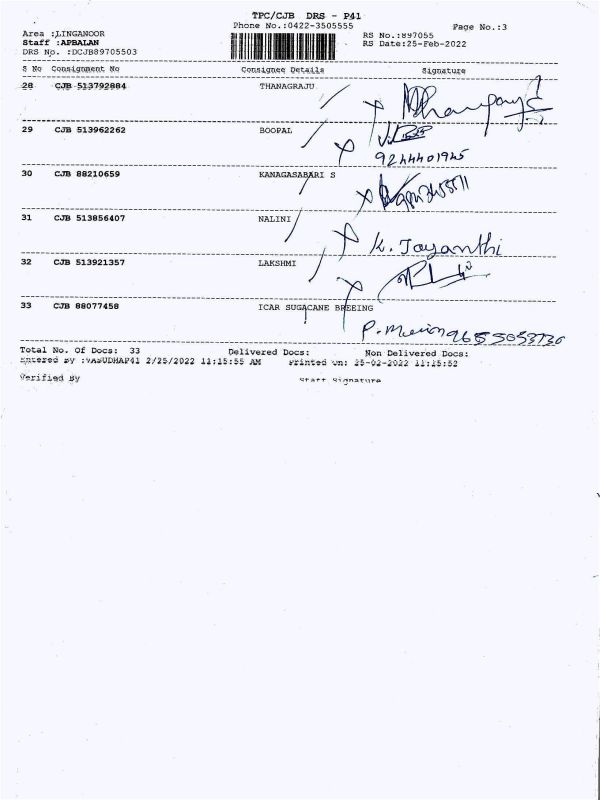 TPC/CJB DRS - P41
Phone No.:0422-3505555
Page No.:3
Area :LINGANOOR
RS No.:897055
Staff :APBALAN
RS Date:25-Feb-2022
DRS No. :DCJB89705503
S No Consignment No Consignee Details Signature
28 CJB 513792884 THANAGRAJU
29 CJB 513962262 BOOPAL
9244401945
30 CJB 88210659 KANAGASABARI S
31 CJB 513856407 NALINI
K. Jayanthi
32 CJB 513921357 LAKSHMI
33 CJB 88077458 ICAR SUGACANE BREEING
Total No. Of Docs: 33 Delivered Docs: Non Delivered Docs:
Entered By :VASUDHAP41 2/25/2022 11:15:55 AM Printed On: 25-02-2022 11:15:52
Verified By Staff Signature